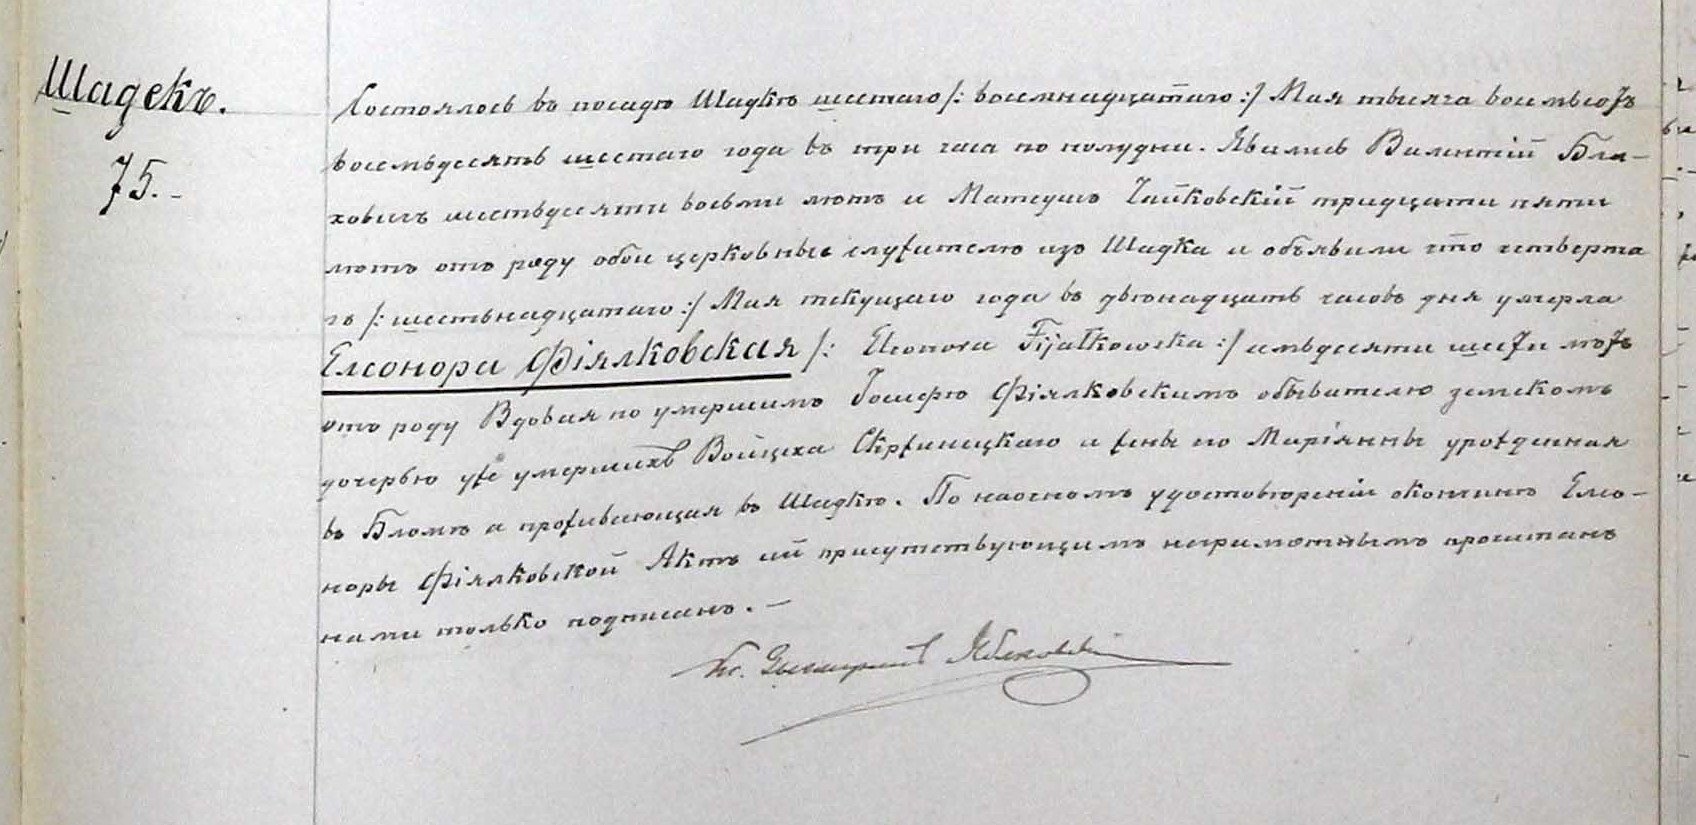 Шадекъ.
75.-
Состоялось въ посадѣ Шадкѣ шестаго /: восемнадцатаго :/ Мая тысяча восемьсотъ
восемьдесятъ шестаго года въ три часа по полудни. Явились Валентій Бла-
ховичъ шестьдесяти восьми лѣтъ и Матеушъ Чайковскій тридцати пяти
лѣтъ отъ роду обои церковные служители изъ Шадка и объявили что четверта
го /: шестьнадцатаго :/ Мая текущаго года въ двѣнадцать часовъ дня умерла
Елеонора Фіялковская /: Eleonora Fijałkowska :/ семьдесяти шести лѣтъ
отъ роду Вдовая по умершимъ Іосифѣ Фіялковскимъ обывателѣ земскомъ
дочерью уже умершихъ Войцеха Скржинецкаго и жены его Маріянны урожденная
въ Бломѣ а проживающая въ Шадкѣ. По наочномъ удостовѣреніи окончинѣ Елео-
норы Фіялковской Актъ сій присутствующимъ неграмотнымъ прочитанъ
нами только подписанъ. —
Кс.